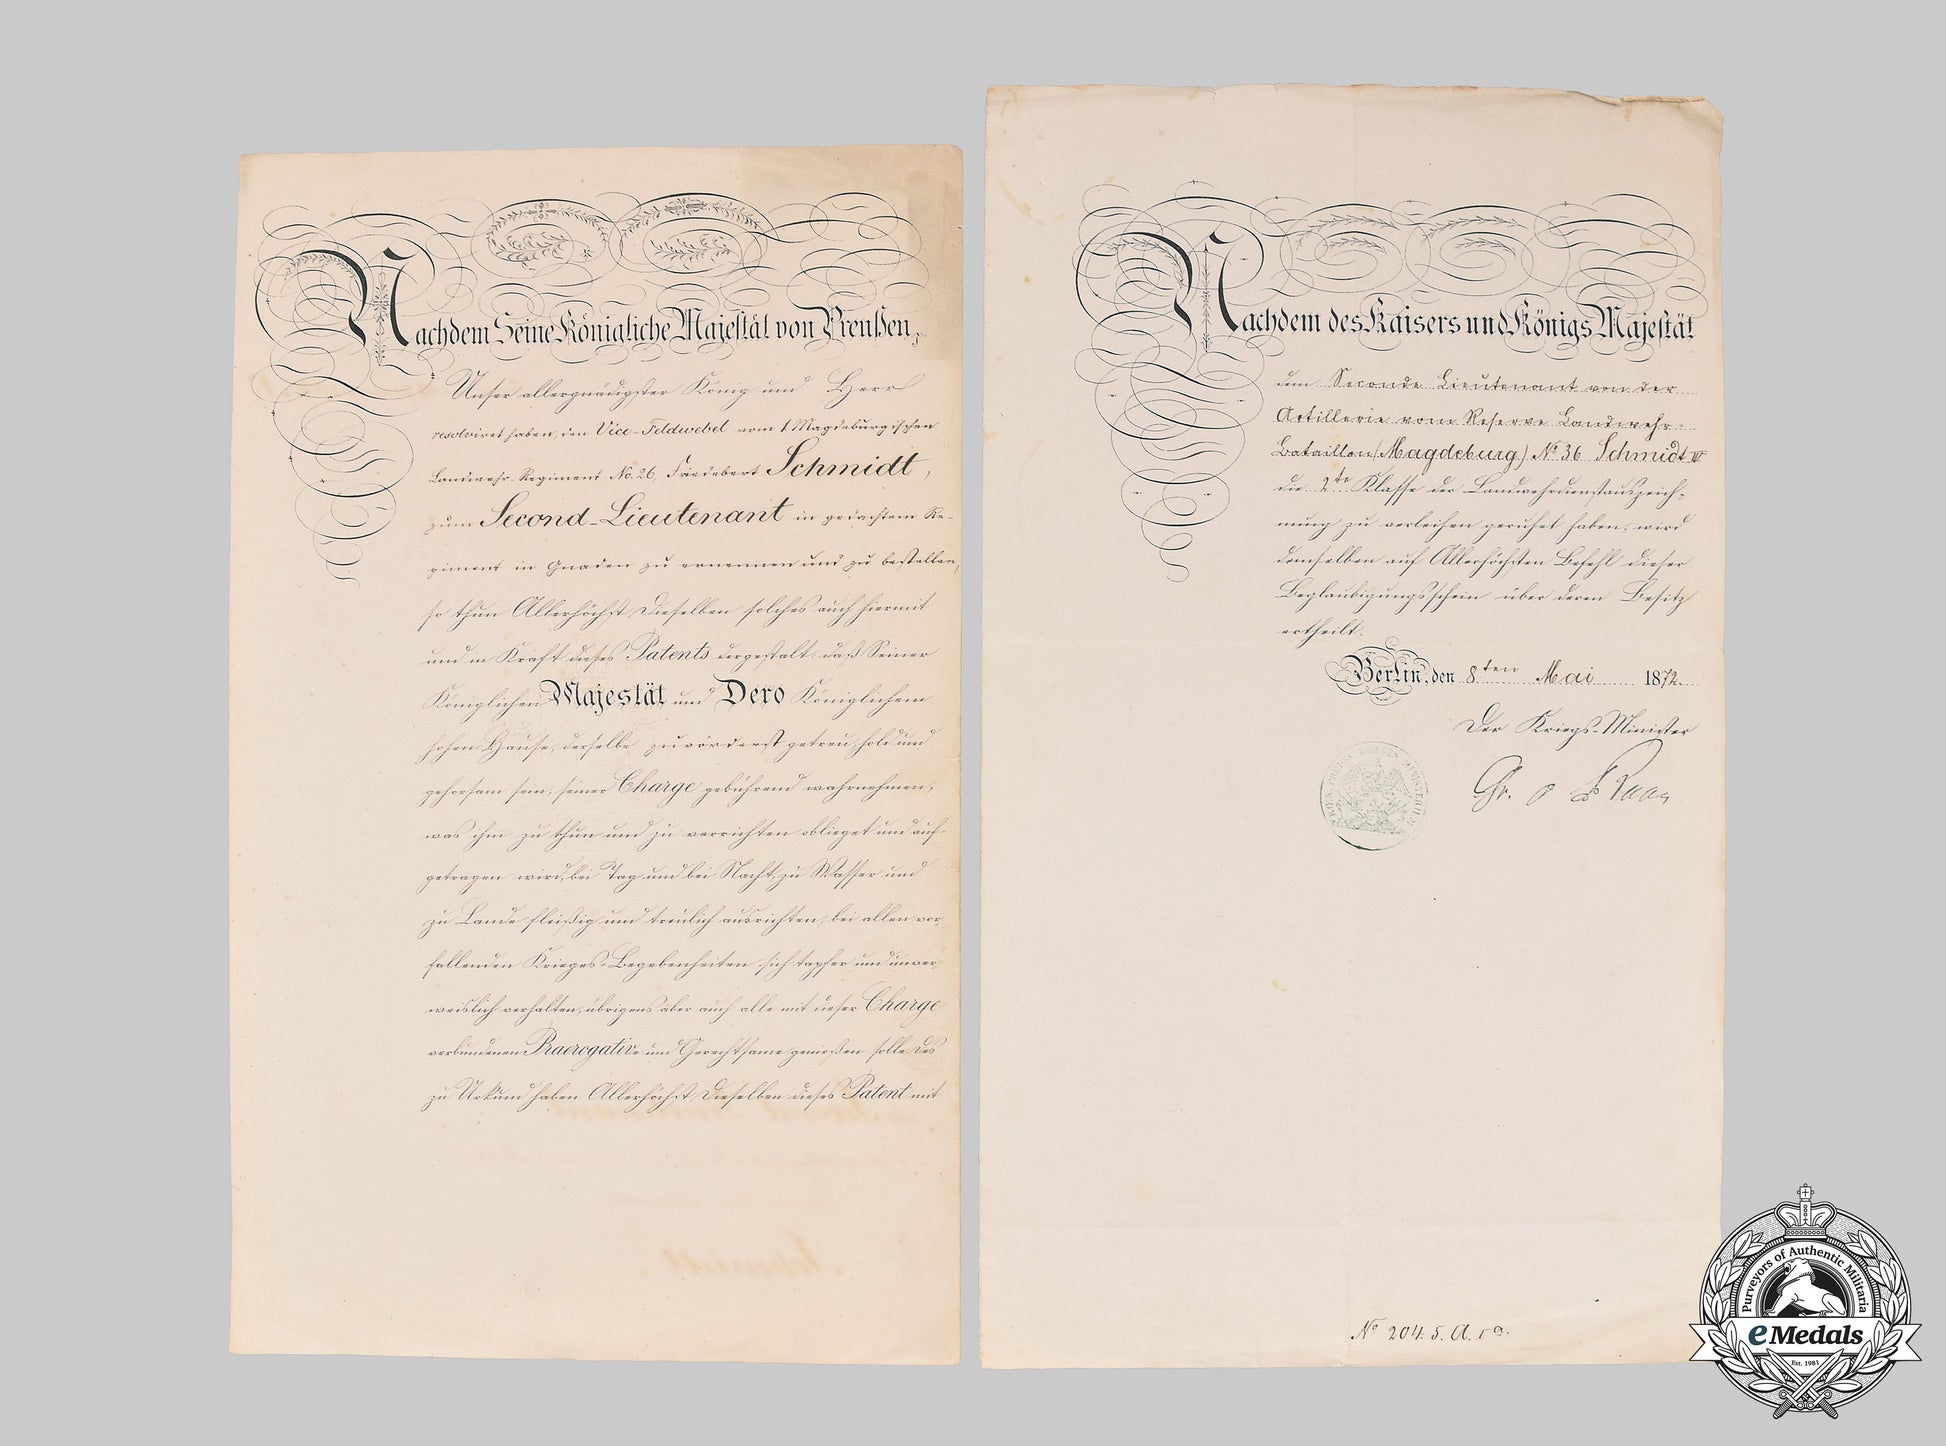 Nachdem Seine Königliche Majestät von Preußen,
Unser allergnädigster König und Herr
resolviret haben, den Vice-Feldwebel vom 1. Magdeburgischen
Landwehr-Regiment No. 26, Friedebert Schmidt,
zum Second-Lieutenant in gedachtem Re-
giment in Gnaden zu ernennen und zu bestellen,
so thun Allerhöchst Dieselben solches auch hiermit
und in Kraft dieses Patents dergestalt: daß Seiner
Königlichen Majestät und Dero Königlichem
hohen Hause, derselbe zuvörderst getreu, hold und
gehorsam sein, seiner Charge gebührend wahrnehmen,
was ihm zu thun und zu verrichten oblieget und auf-
getragen wird, bei Tag und bei Nacht, zu Wasser und
zu Lande fleißig und treulich ausrichten, bei allen vor-
fallenden Krieges-Begebenheiten sich tapfer und unver-
weislich verhalten, übrigens aber auch alle mit dieser Charge
verbundenen Praerogative und Gerechtsame genießen solle. Des
zu Urkund haben Allerhöchst Dieselben dieses Patent mit
Nachdem des Kaisers und Königs Majestät
dem Seconde Lieutenant von der
Artillerie vom Reserve Landwehr-
Bataillon (Magdeburg) No 36 Schmidt IV
die 2te Klasse der Landwehrdienstauszeich-
nung zu verleihen geruhet haben, wird
demselben auf Allerhöchsten Befehl dieser
Beglaubigungsschein über deren Besitz
ertheilt.
Berlin, den 8ten Mai 1872.
Der Kriegs-Minister
Gr. v Roon
No 204. 5. A. 1a.
Purveyors of Authentic Militaria
eMedals
Est. 1983